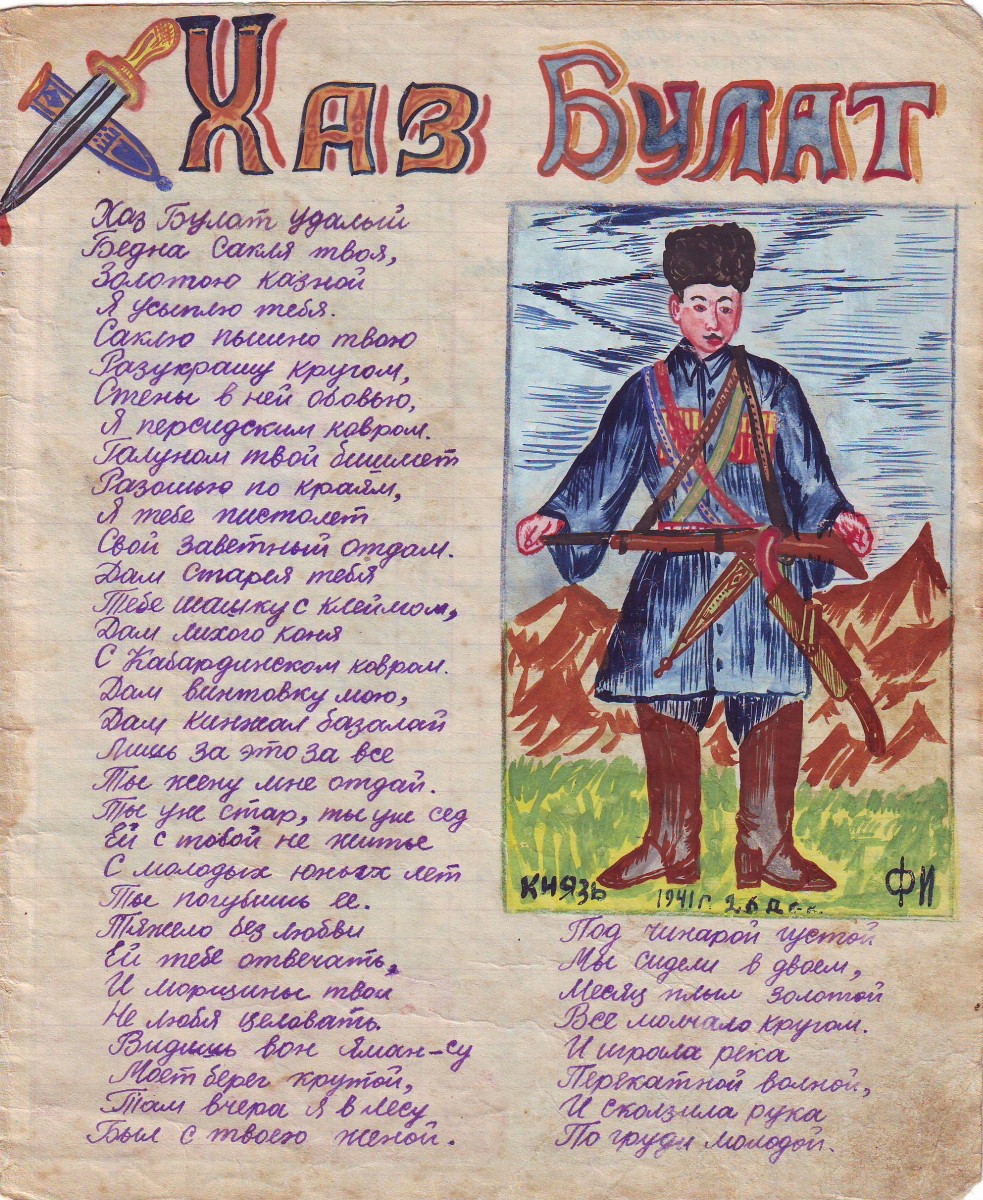 Хаз Булат
Хаз Булат удалый
Бедна сакля твоя,
Золотою казной
Я усыплю тебя.
Саклю пышно твою
Разукрашу кругом,
Стены в ней обовью,
Я персидским ковром.
Галуном твой бишмет
Разошью по краям,
Я тебе пистолет
Свой заветный отдам.
Дам старея тебя
Тебе шашку с клеймом,
Дам лихого коня
С Кабардинском ковром.
Дам винтовку мою,
Дам кинжал базалай
Лишь за это за все
Ты жену мне отдай.
Ты уж стар, ты уж сед
Ей с тобой не житье
С молодых юных лет
Ты погубишь ее.
Тяжело без любви
Ей тебе отвечать,
И морщины твои
Не любя целовать.
Видишь вон Яман-су
Моет берег крутой,
Там вчера я в лесу
Был с твоею женой.
Князь
1941 г. 26 Дек.
ФИ
Под чинарой густой
Мы сидели в двоем,
Месяц плыл золотой
Все молчало кругом.
И играла река
Перекатной волной,
И сколзила рука
По груди молодой.